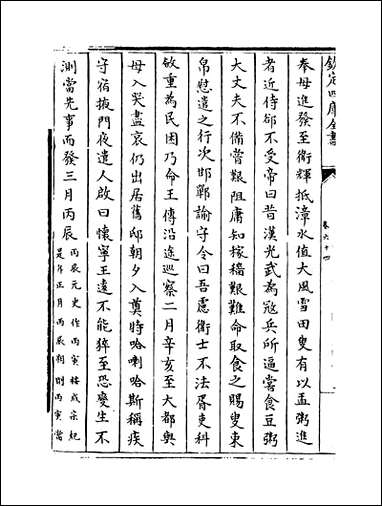 欽定四庫全書
卷六十四
奉母進發至衛輝抵漳水值大風雪田叟有以盂粥進
者近侍郤不受帝曰昔漢光武為寇兵所逼嘗食豆粥
大丈夫不備嘗艱阻庸知稼穡艱難命取食之賜叟束
帛慰遣之行次邯鄲諭守令曰吾慮衛士不法胥吏科
斂重為民困乃命王傅沿途巡察二月辛亥至大都與
母入哭盡哀仍出居舊邸朝夕入奠時哈喇哈斯稱疾
守宿掖門夜遣人啟曰懷寧王遠不能猝至恐變生不
測當先事而發三月丙辰
丙辰元史作丙寅據成宗紀
是年正月丙辰朔則丙寅當